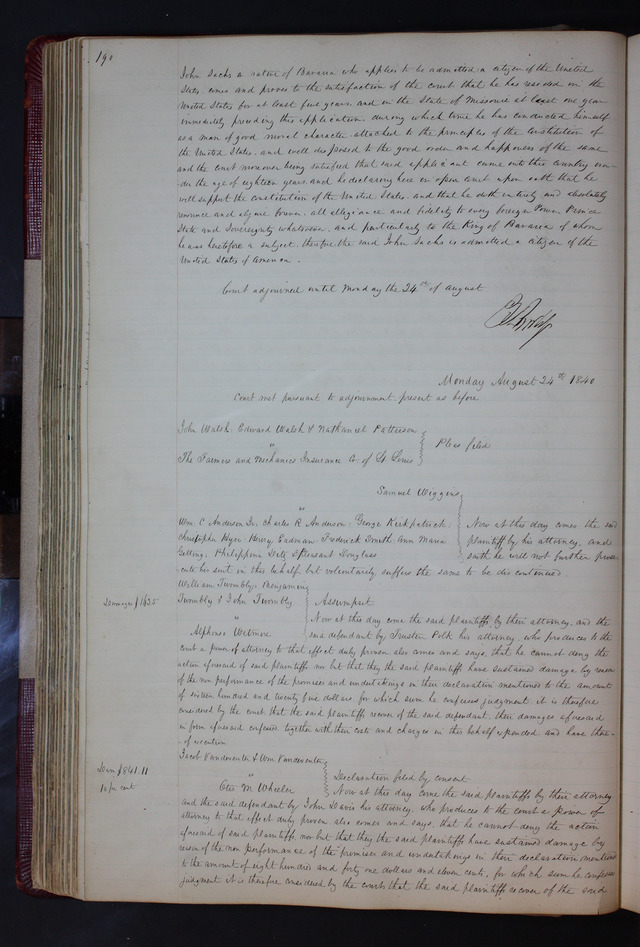 190
John Sachs a native of Bavaria who applies to be admitted a citizen of the United
States comes and proves to the satisfaction of the court that he has resided in the
United States for at least five years, and in the State of Missouri at least one year
immediately preceding this application, during which time he has conducted himself
as a man of good moral character attached to the principles of the constitution of
the United States, and well disposed to the good order and happiness of the same
and the court moreover being satisfied that said applicant came into this country un-
der the age of eighteen years, and he declaring here in open court upon oath that he
will support the constitution of the United States, and that he doth entirely and absolutely
renounce and abjure forever, all allegiance and fidelity to every foreign Power, Prince
State and Sovereignty whatsoever, and particularly to the King of Bavaria of whom
he was heretofore a subject, therefore the said John Sachs is admitted a citizen of the
United States of America.
Court adjourned until Monday the 24th of August
Monday August 24th 1840
Court met pursuant to adjournment, present as before
John Walsh, Edward Walsh & Nathaniel Patterson
"
The Farmers and Mechanics Insurance Co. of St. Louis
Pleas filed
Samuel Wiggins
"
Wm. C Anderson Jr, Charles R Anderson, George Kirkpatrick,
Christopher Hyer, Henry Eadman, Frederick Smith, Ann Maria
Gelling, Philippina Deitz & Pleasant Douglass
Now at this day comes the said
plaintiff by his attorney, and
saith he will not further prose-
cute his suit in this behalf, but voluntarily suffers the same to be discontinued.
William Twombly, Benjamin
Twombly & John Twombly
"
Alphonso Wetmore
Damages $1625
Assumpsit
Now at this day come the said plaintiffs by their attorney, and the
said defendant by Trusten Polk his attorney, who produces to the
court a power of attorney to that effect duly proven also comes and says, that he cannot deny the
action aforesaid of said plaintiffs nor but that they the said plaintiffs have sustained damage by reason
of the non performance of the promises and undertakings in their declaration mentioned to the amount
of sixteen hundred and twenty five dollars for which sum he confesses judgment it is therefore
considered by the court that the said plaintiffs recover of the said defendant, their damages aforesaid
in form aforesaid confessed together with their costs and charges in this behalf expended and have there-
-of execution
Jacob Vandeventer & Wm Vandeventer
"
Otis M Wheeler
Dam $841.11
10 pr cent
Declaration filed by consent
Now at this day come the said plaintiffs by their attorney
and the said defendant by John Davis his attorney, who produces to the court a power of
attorney to that effect duly proven also comes and says, that he cannot deny the action
aforesaid of said plaintiffs nor but that they the said plaintiffs have sustained damage by
reason of the non performance of the promises and undertakings in their declaration mentioned
to the amount of eight hundred and forty one dollars and eleven cents, for which sum he confesses
judgment it is therefore considered by the court that the said plaintiffs recover of the said